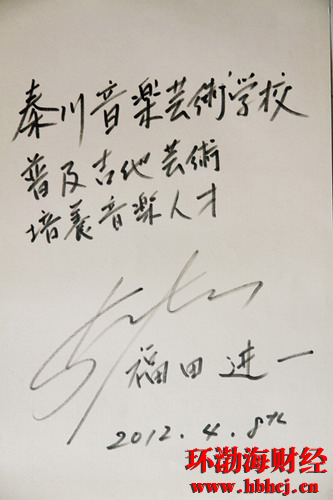 秦川音楽芸術学校
普及吉他芸術
培養音楽人才
福田进一
2012.4.8th
环渤海财经
www.hbhcj.cn